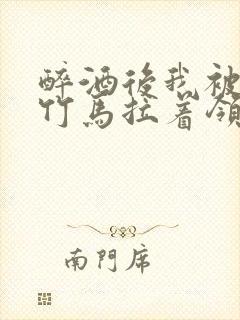 醉酒後我被
竹馬拉着領
南門席